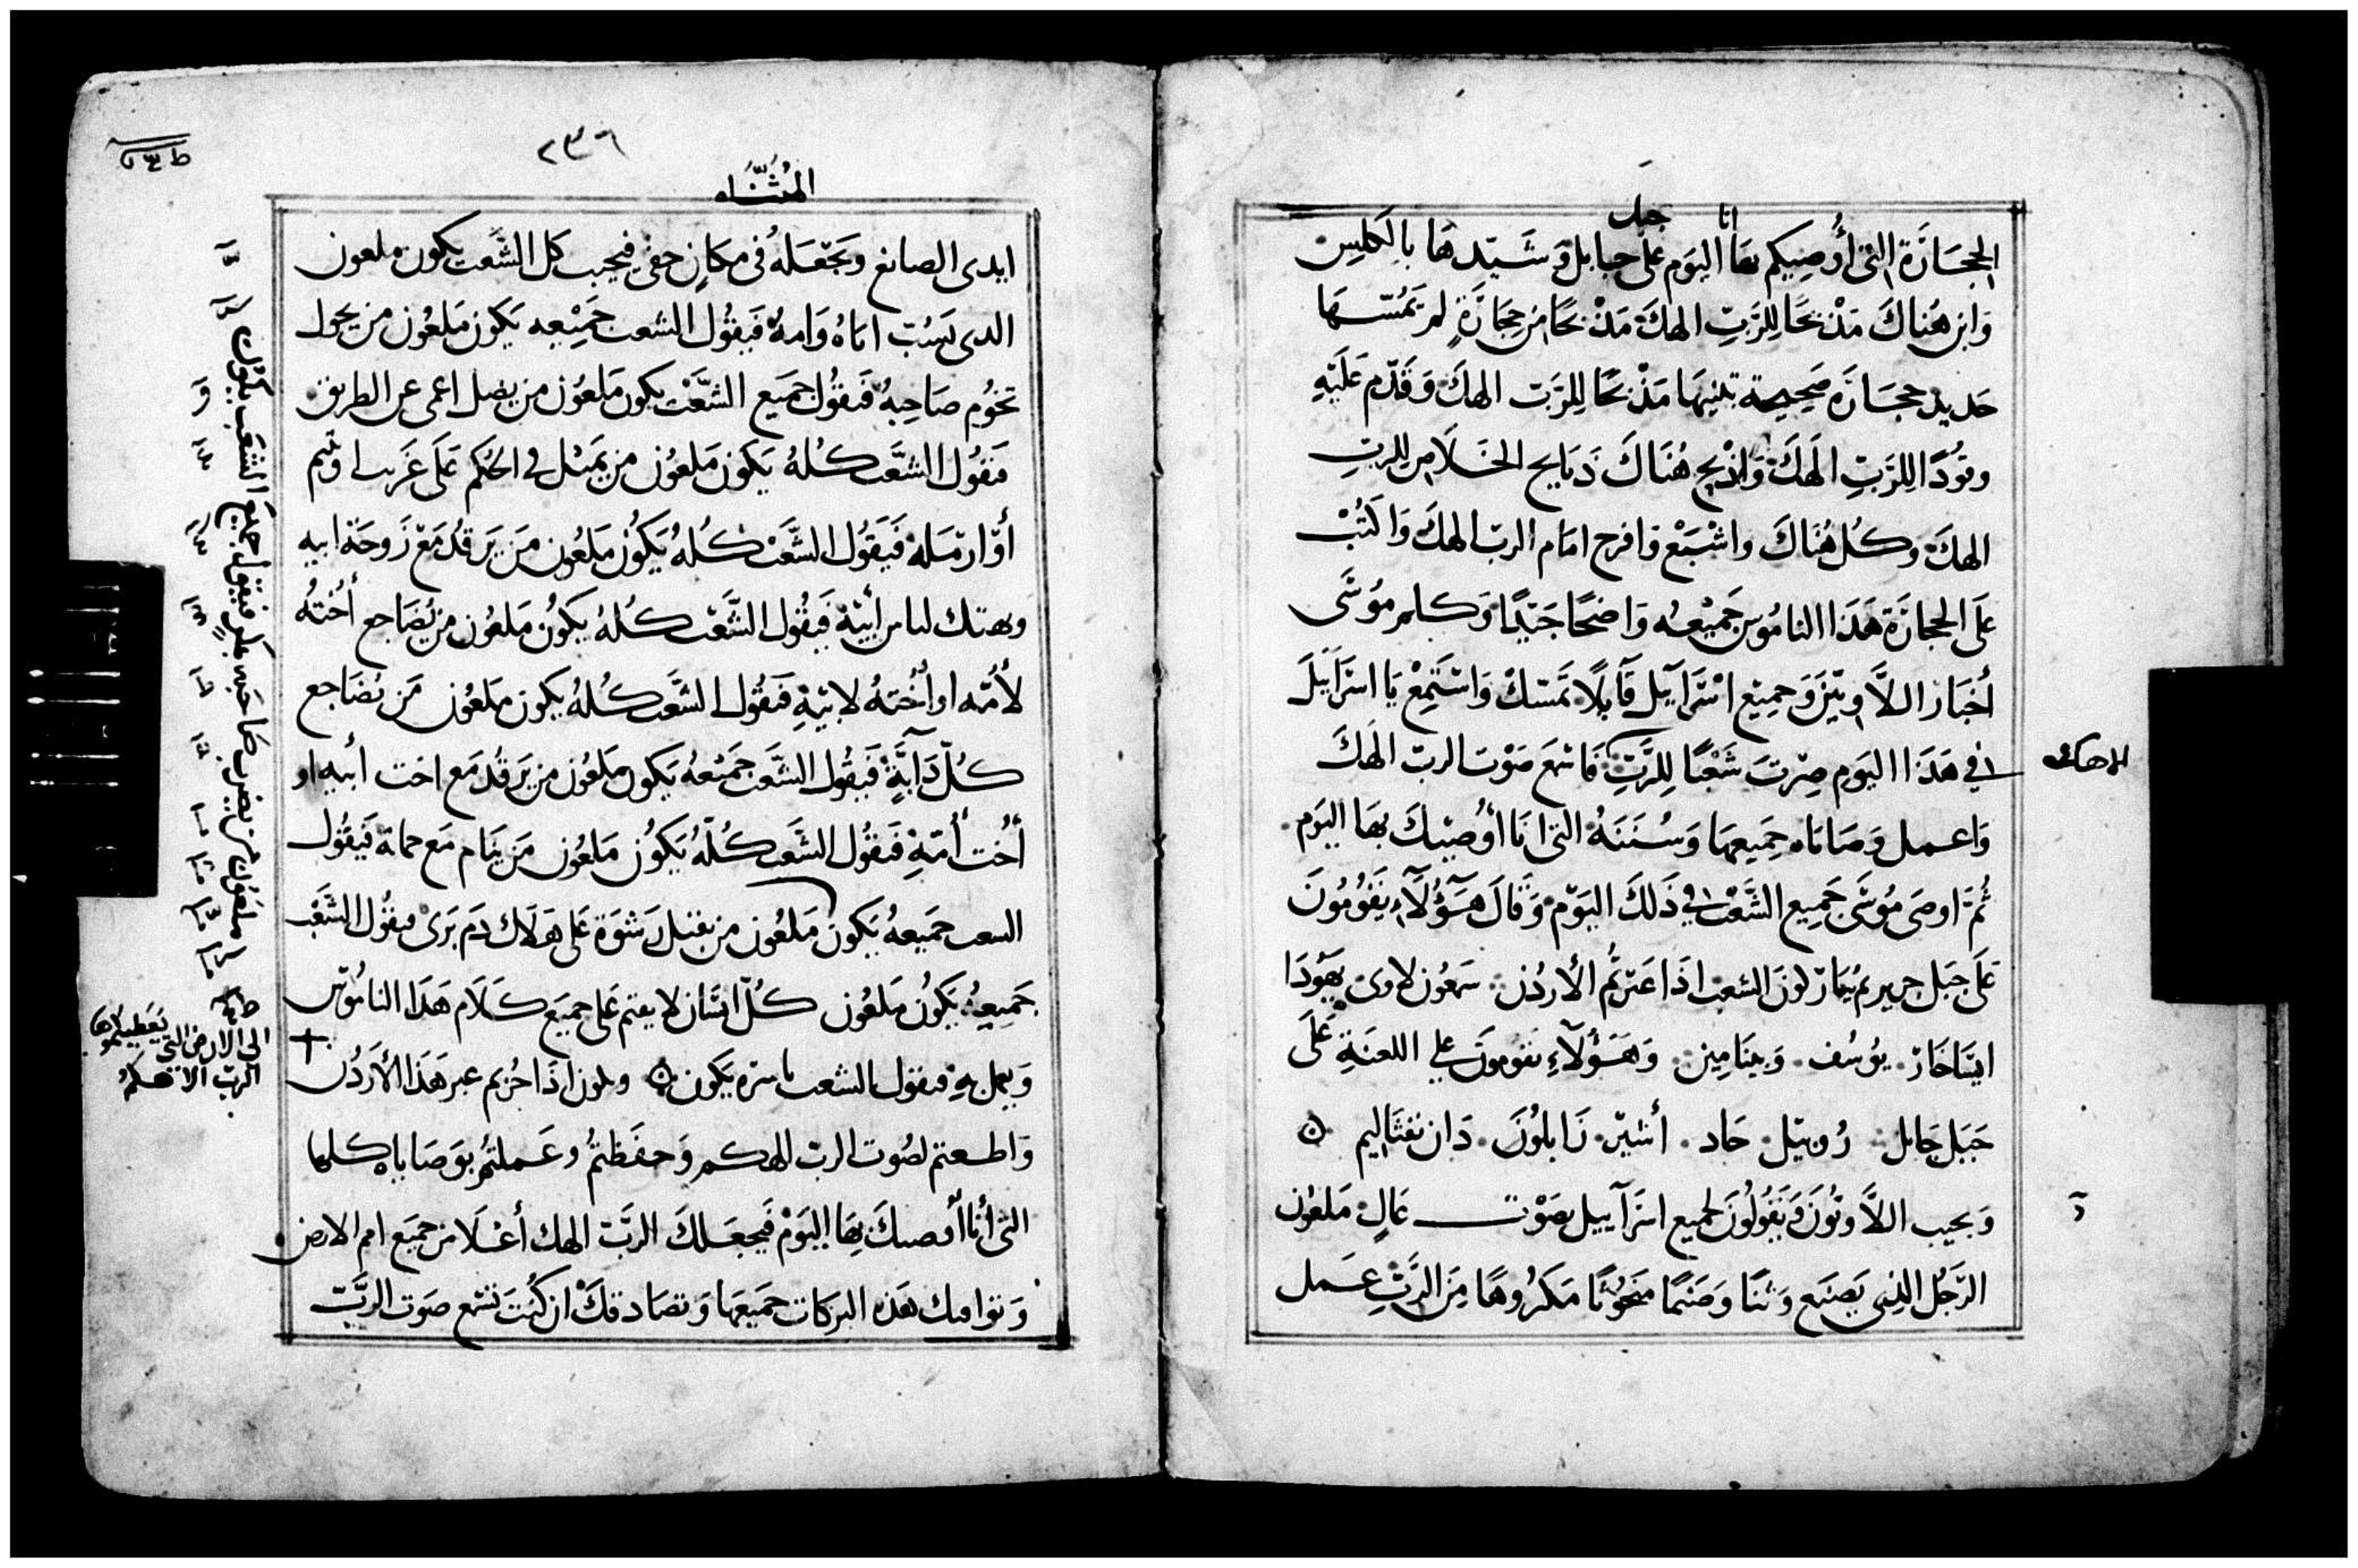 انا جبل
الحجارة التي أُوصِيكم بها اليوم على جبابل وَشَيّدها بالكلِس
وَابن هُناكَ مَذْبَحًا لِلرَّبّ الهكَ مَذْبحًا من حِجَارَةٍ لم تَمُسّها
حَديد حجَارَه صَحِيحة تبنيها مَذْبحًا لِلرَّبّ الهكَ وَقدّم عَلَيْهِ
وقُودًا لِلرَّبِّ الَهكَ وَاذْبح هُنَاكَ ذبَايح الخلاص للربِ
الهكَ وكُل هُنَاكَ واشْبَعْ وَافرح امَام الربّ الهكَ وَاكتُبْ
عَلَى الحجارَة هَذَا النامُوس جَمِيْعه وَاضحًا جَيّدًا وَكلم مُوسَى
أحبَار اللَّاويّين وَجميع اسْرَآيل قَآيلًا تمسّكْ وَاسْتَمِعْ يَا اسرَآيلَ
في هَذَا اليوم صِرْتَ شَعْبًا لِلرَّبّ فَاسْمَع صَوْت الربّ الهكَ
الاهك
وَاعمل وَصَايَاه جَمِيعهَا وَسُنَنَهُ التي انَا أوُصِيْكَ بهَا اليَوم
ثُمَّ اوصَى مُوسَى جَمِيع الشَّعْب في ذَلكَ اليَوْم وَقَالَ هَؤُلَآءِ يَقُومُونَ
عَلَى جَبَل جريريم يُبَارَكونَ الشعب اذَا عَبَرتُم الأردُن سمعُون لاوى يهُودَا
ايسَاخَار يوُسُف وَبنيَامِين وَهَؤُلَآءِ يقومونَ على اللعنَةِ عَلَى
جَبَل جَابل رُوبيل جَاد أشيرْ زَابلُونَ دَان نفثَاليم
وَيجيب اللَّاويُونَ وَيَقُولُونَ لجميع اسرَآييل بصَوْت عَالٍ مَلعُون
الرّجُل الذي يَصنَع وَثنًا وَصَنمًا مَنحُوتًا مَكرُوهًا مِنَ الرَّبّ عَمل
٢٣٦
المُثَنَّاه
ايدى الصانع وَيَجْعَلهُ في مكَانٍ خفي فيجيب كل الشَّعب يكون ملعون
الدى يَسُبّ اباهُ وَامهُ فَيقُول الشعب جَمِيْعه يَكون مَلعُون من يحول
تخُوم صَاحِبهُ فَيقُول جميع الشَّعْب يكون مَلعُون من يضل اعمى عن الطريق
فيقُول الشَّعب كُلهُ يَكون مَلعُون من يَميل في الحُكم عَلَى غَريب او يتيم
أوْ ارْمَلة فَيَقُول الشَّعْب كُلهُ يَكُون مَلعُون مَن يَرقُد مَعْ زَوجَة ابيه
ويهتك لباس أبيْه فيقُول الشَّعْب كُلهُ يكونُ مَلعُون من يُضَاجع أُختهُ
لأمّه او أُختهُ لابيْهِ فيقُول الشعب كُلهُ يكون ملعُون مَن يُضَاجع
كُلّ دَآبَّةٍ فَيقُول الشَّعب جَمِيْعهُ يَكون مَلعُون من يَرقُد مَع اخت أبيه او
أُخت أُمّهِ فيقُول الشَّعب كُلّهُ يَكُون مَلعُون مَن يَنام مَع حماة فَيقُول
السعب جَميعهُ يَكون مَلعُون من يقبل رَشوَة عَلى هَلاك دَم بَرىْ فيقُول الشَعْب
جَمِيعهُ يَكُون مَلعُون كُلّ انسَان لا يقيم عَلى جميَع كَلَام هَذَا النامُوس
وَيعمل بهِ فيقول الشعب باسره يَكون ويكون اذَا جُزتم عبر هَذَا الأُردُن
وَاطعتم لصُوت الربّ الهكم وَحفَظتمُ وعَملتُم بوَصَاياه كلها
التي أنَا أوصيكَ بهَا اليَوْم فَيجعَلكَ الرَّبّ الهك أعْلَا من جميَع امم الارض
وَتوافيك هَذه البركَات جَميَعهَا وَتصَادفكْ ان كنُتَ تسْمع صَوت الرَّبّ
ملعُون من يضرب صَاحبه بمكرٍ فيقول جميع الشعَب يكون
الى الارض التى يَعطيكموها
الربّ الاهكم